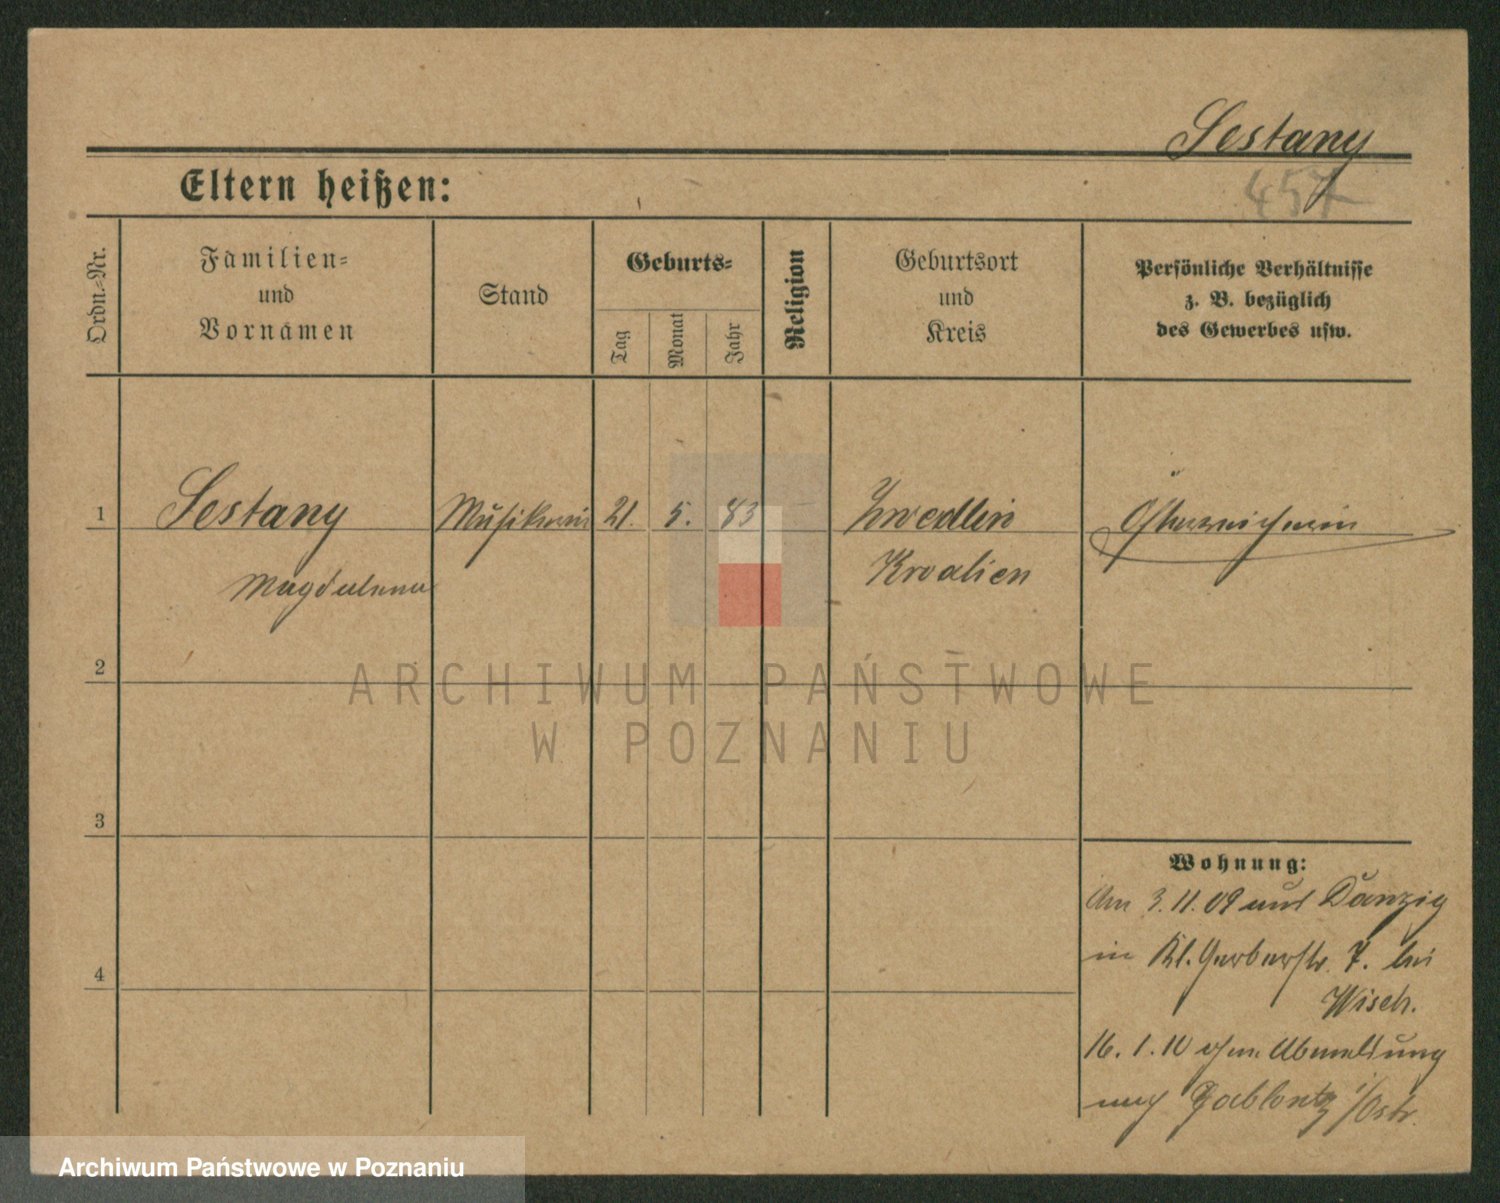 Sestany
457
Eltern heißen:
Ordn.-Nr.
Familien-
und
Vornamen
Stand
Geburts-
Tag
Monat
Jahr
Religion
Geburtsort
und
Kreis
Persönliche Verhältnisse
z. B. bezüglich
des Gewerbes usw.
1 Sestany Musikerin 21. 5. 83 Zwedlin Österreicherin
Magdalena Kroatien
2
3
4
Wohnung:
Am 3.11.09 aus Danzig
in Kl. Gerberstr. 7. bei
Wisch.
16. 1. 10 ohne Abmeldung
nach Gablontz i/Östr.
ARCHIWUM PAŃSTWOWE
W POZNANIU
Archiwum Państwowe w Poznaniu